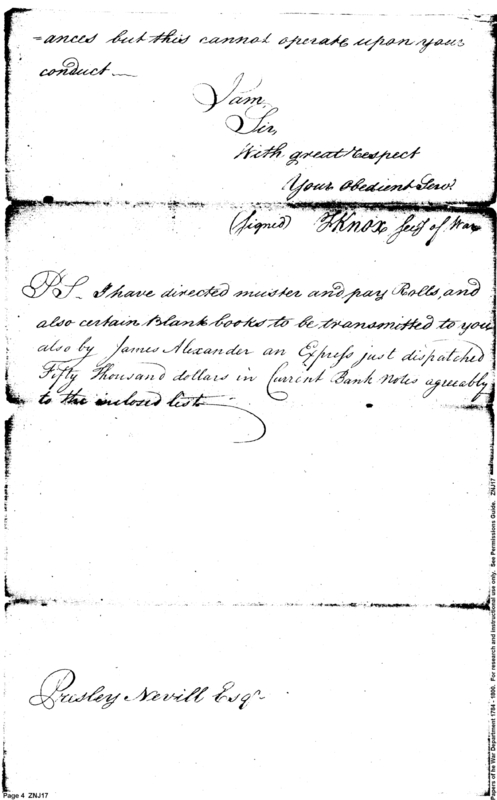 =ances but this cannot operate upon your
conduct —
I am
Sir,
With great respect
Your Obedient Servt
(signed) HKnox Secy of War
PS. I have directed muster and pay Rolls, and
also certain Blank books to be transmitted to you
also by James Alexander an Express just dispatched
Fifty Thousand dollars in Current Bank Notes agreeably
to the inclosed list
Presley Nevill Esqr
Page 4 ZNJ17
Papers of he War Department 1784 - 1800. For research and instructional use only. See Permissions Guide. ZNJ17